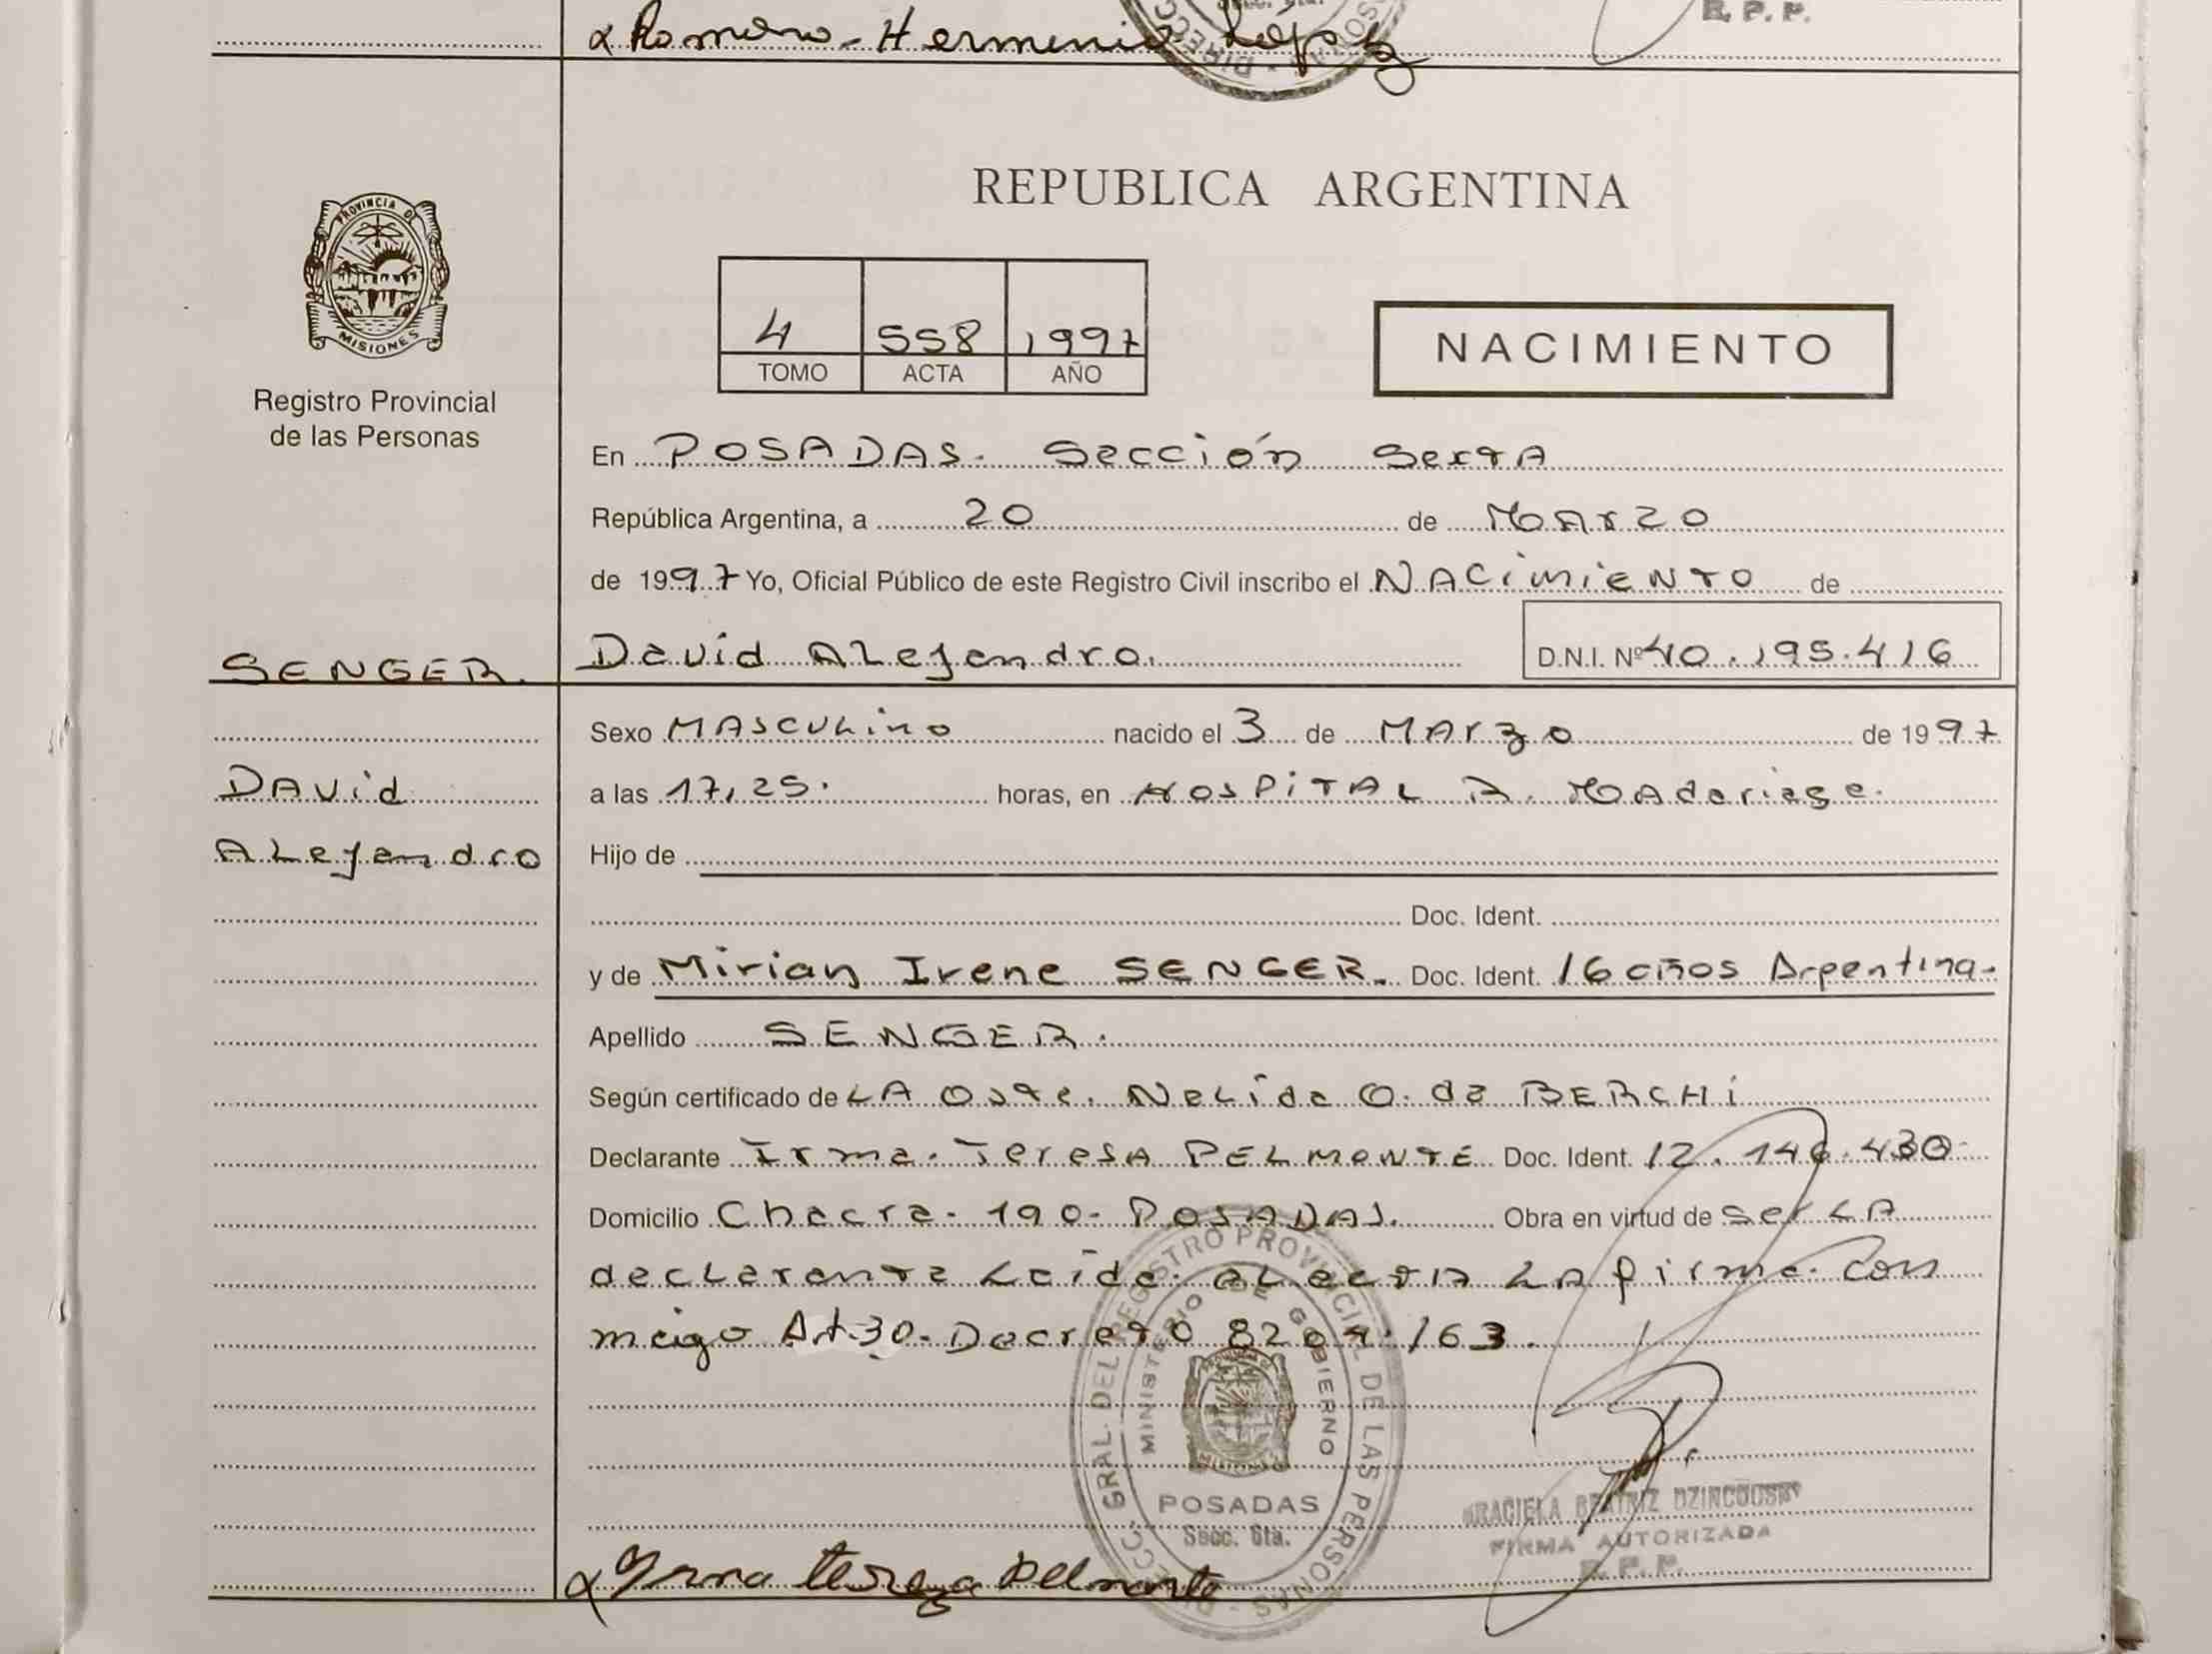 Romero - Hermenia Lopez
R. P. P.
PROVINCIA DE
MISIONES
Registro Provincial
de las Personas
REPUBLICA ARGENTINA
4 558 1997
TOMO ACTA AÑO
NACIMIENTO
En POSADAS. Sección Sexta
República Argentina, a 20 de Marzo
de 1997 Yo, Oficial Público de este Registro Civil inscribo el NACimieNTO de
SENGER. David ALejandro. D.N.I. Nº 40.195.416
Sexo MASCULino nacido el 3 de MARzo de 1997
DAVid
a las 17,25. horas, en HOSPITAL R. Madariaga.
ALejandro
Hijo de
Doc. Ident.
y de Mirian Irene SENGER. Doc. Ident. 16 años Argentina.
Apellido SENGER.
Según certificado de LA Oste. NeLida O. de BERCHi
Declarante Irma. Teresa DELMONTE Doc. Ident. 12.146.430
Domicilio Chacra. 190. POSADAS. Obra en virtud de ser LA
decLarante Leida. eL acta LA firma. Con
migo Art. 30. Decreto 8204./63.
DIRECC. GRAL. DEL REGISTRO PROVINCIAL DE LAS PERSONAS
MINISTERIO DE GOBIERNO
POSADAS
Secc. 6ta.
GRACIELA BEATRIZ
FIRMA AUTORIZADA
R. P. P.
Irma tereza Delmonte